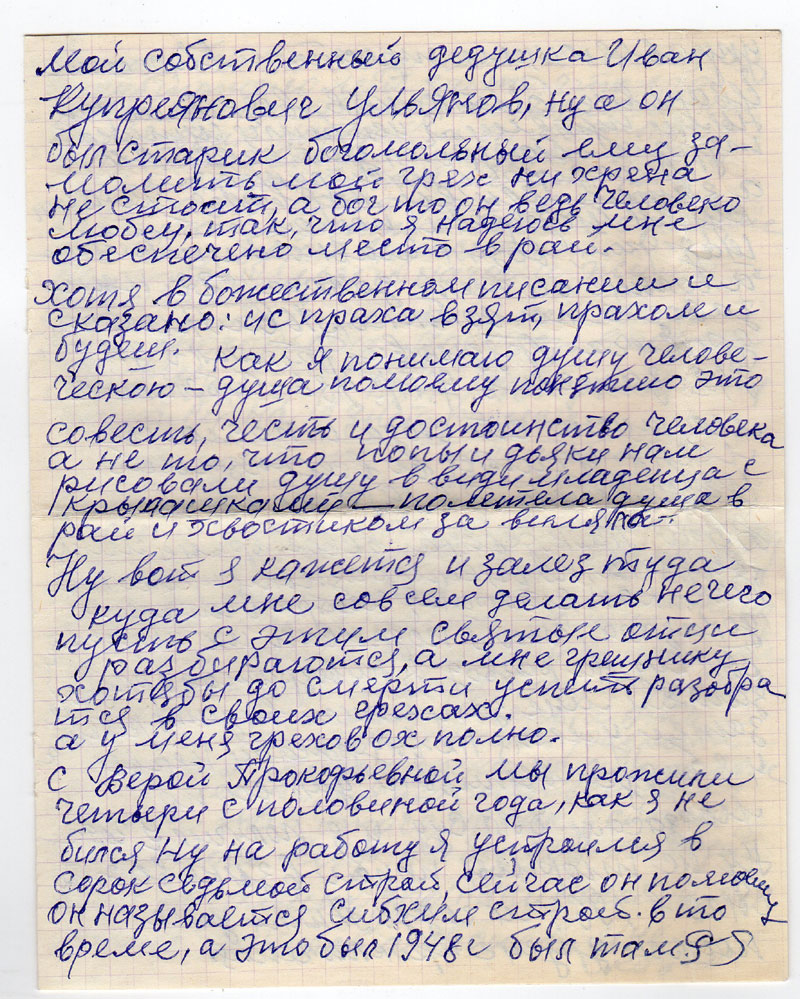 Мой собственный дедушка Иван
Куприянович Ульянов, ну а он
был старик богомольный ему за-
молить мой грех ни хрена
не стоит, а бог то он ведь человеко
любец, так, что я надеюсь мне
обеспечено место в раи.
хотя в божественном писании и
сказано: ис праха взят, прахом и
будеш. Как я понимаю душу челове-
ческою – душа помоему это
совесть, честь и достоинство человека
а не то, что попы и дьяки нам
рисовали душу в виде младенца с
крылашками – полетела душа в
рай и хвостиком за
Ну вот я кажется и залез туда
куда мне совсем делать нечего
пусть с этим святые отци
разбираются, а мне грешнику
хотябы до смерти успить разобра
тся в своих грехах.
а у меня грехов ох полно.
с Верой Прокофьевной мы прожили
четыри с половиной года, как я не
бился ну на работу я устроился в
сорок седьмой строй, сейчас он помоему
он называется Сибхимстрой. в то
време, а это был 1948г был там